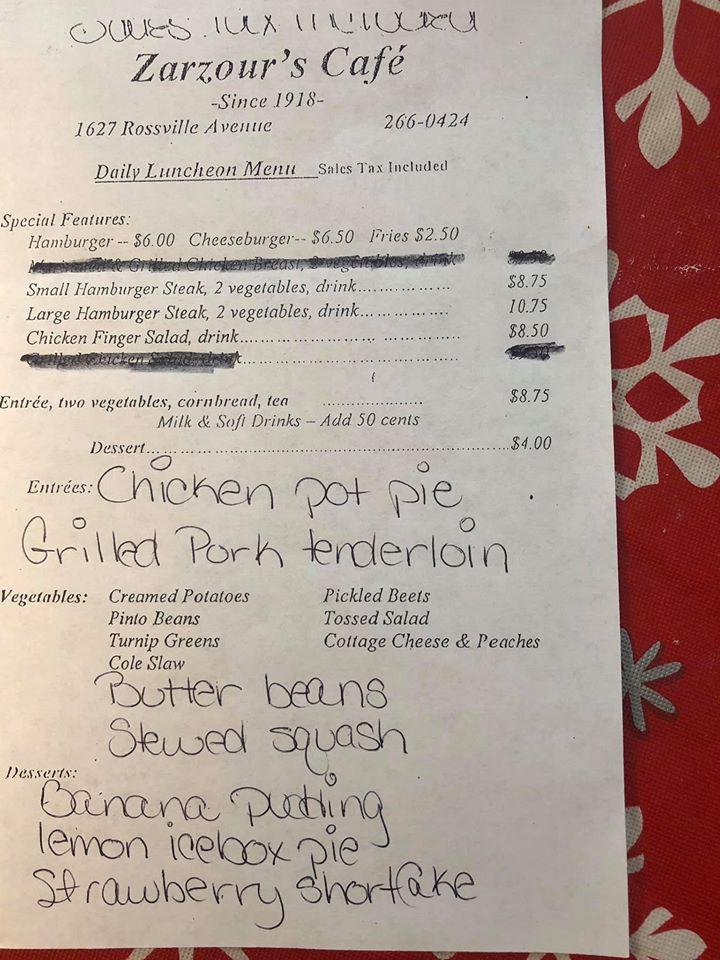 Zarzour's Café
-Since 1918-
1627 Rossville Avenue 266-0424
Daily Luncheon Menu Sales Tax Included
Special Features:
Hamburger -- $6.00 Cheeseburger-- $6.50 Fries $2.50
& Grilled Chicken Breast, 2 vegetables, drink
Small Hamburger Steak, 2 vegetables, drink.................. $8.75
Large Hamburger Steak, 2 vegetables, drink................. 10.75
Chicken Finger Salad, drink.......................................... $8.50
Grilled Chicken Salad, drink..........................................
Entrée, two vegetables, cornbread, tea ................... $8.75
Milk & Soft Drinks – Add 50 cents
Dessert.....................................................................$4.00
Entrées: Chicken pot pie
Grilled Pork tenderloin
Vegetables: Creamed Potatoes Pickled Beets
Pinto Beans Tossed Salad
Turnip Greens Cottage Cheese & Peaches
Cole Slaw
Butter beans
Stewed squash
Desserts:
Banana pudding
lemon icebox pie
Strawberry shortcake